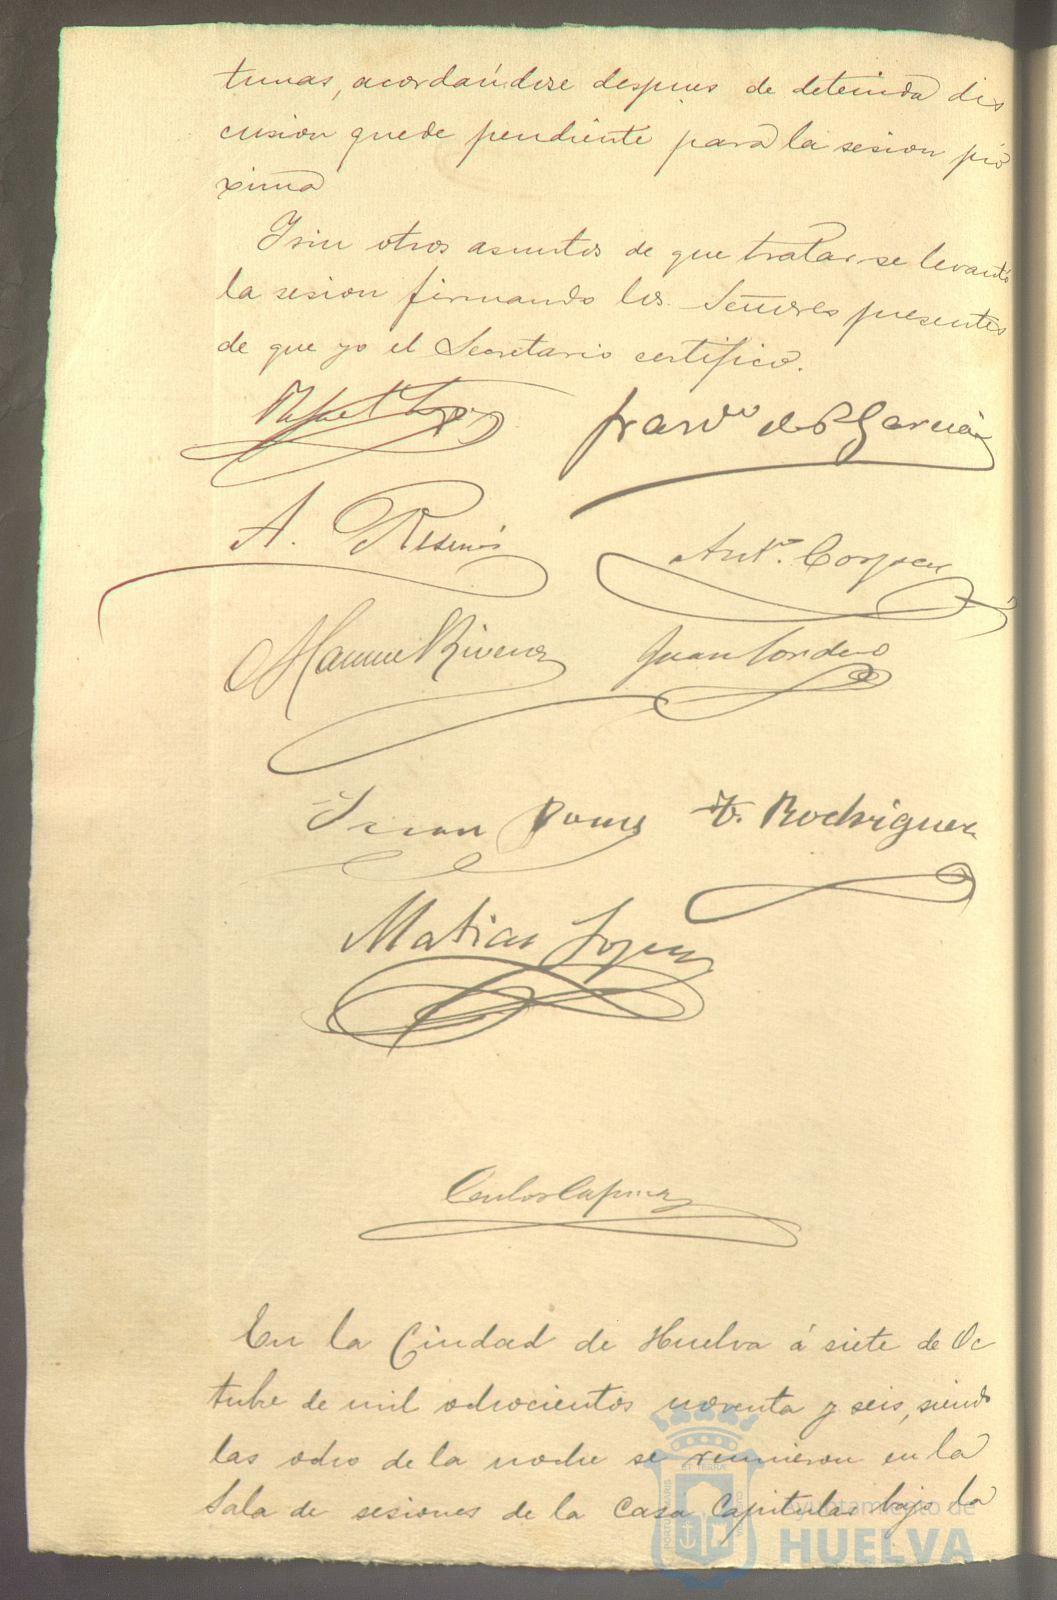 tunas, acordandose despues de detenida dis
cusion quede pendiente para la sesion pró
xima
Y sin otros asuntos de que tratar se levantó
la sesion firmando los Señores presentes
de que yo el Secretario certifico.
Rafael Lopez
Franco de P Garcia
A. Resimis
Anto.
Manuel Rivera
Juan Cordero
Juan
F. Rodriguez
Matias Lopez
Carlos
En la Ciudad de Huelva á siete de Oc
tubre de mil ochocientos noventa y seis, siendo
las ocho de la noche se reunieron en la
Sala de sesiones de la Casa Capitular bajo la
Ayuntamiento de
HUELVA